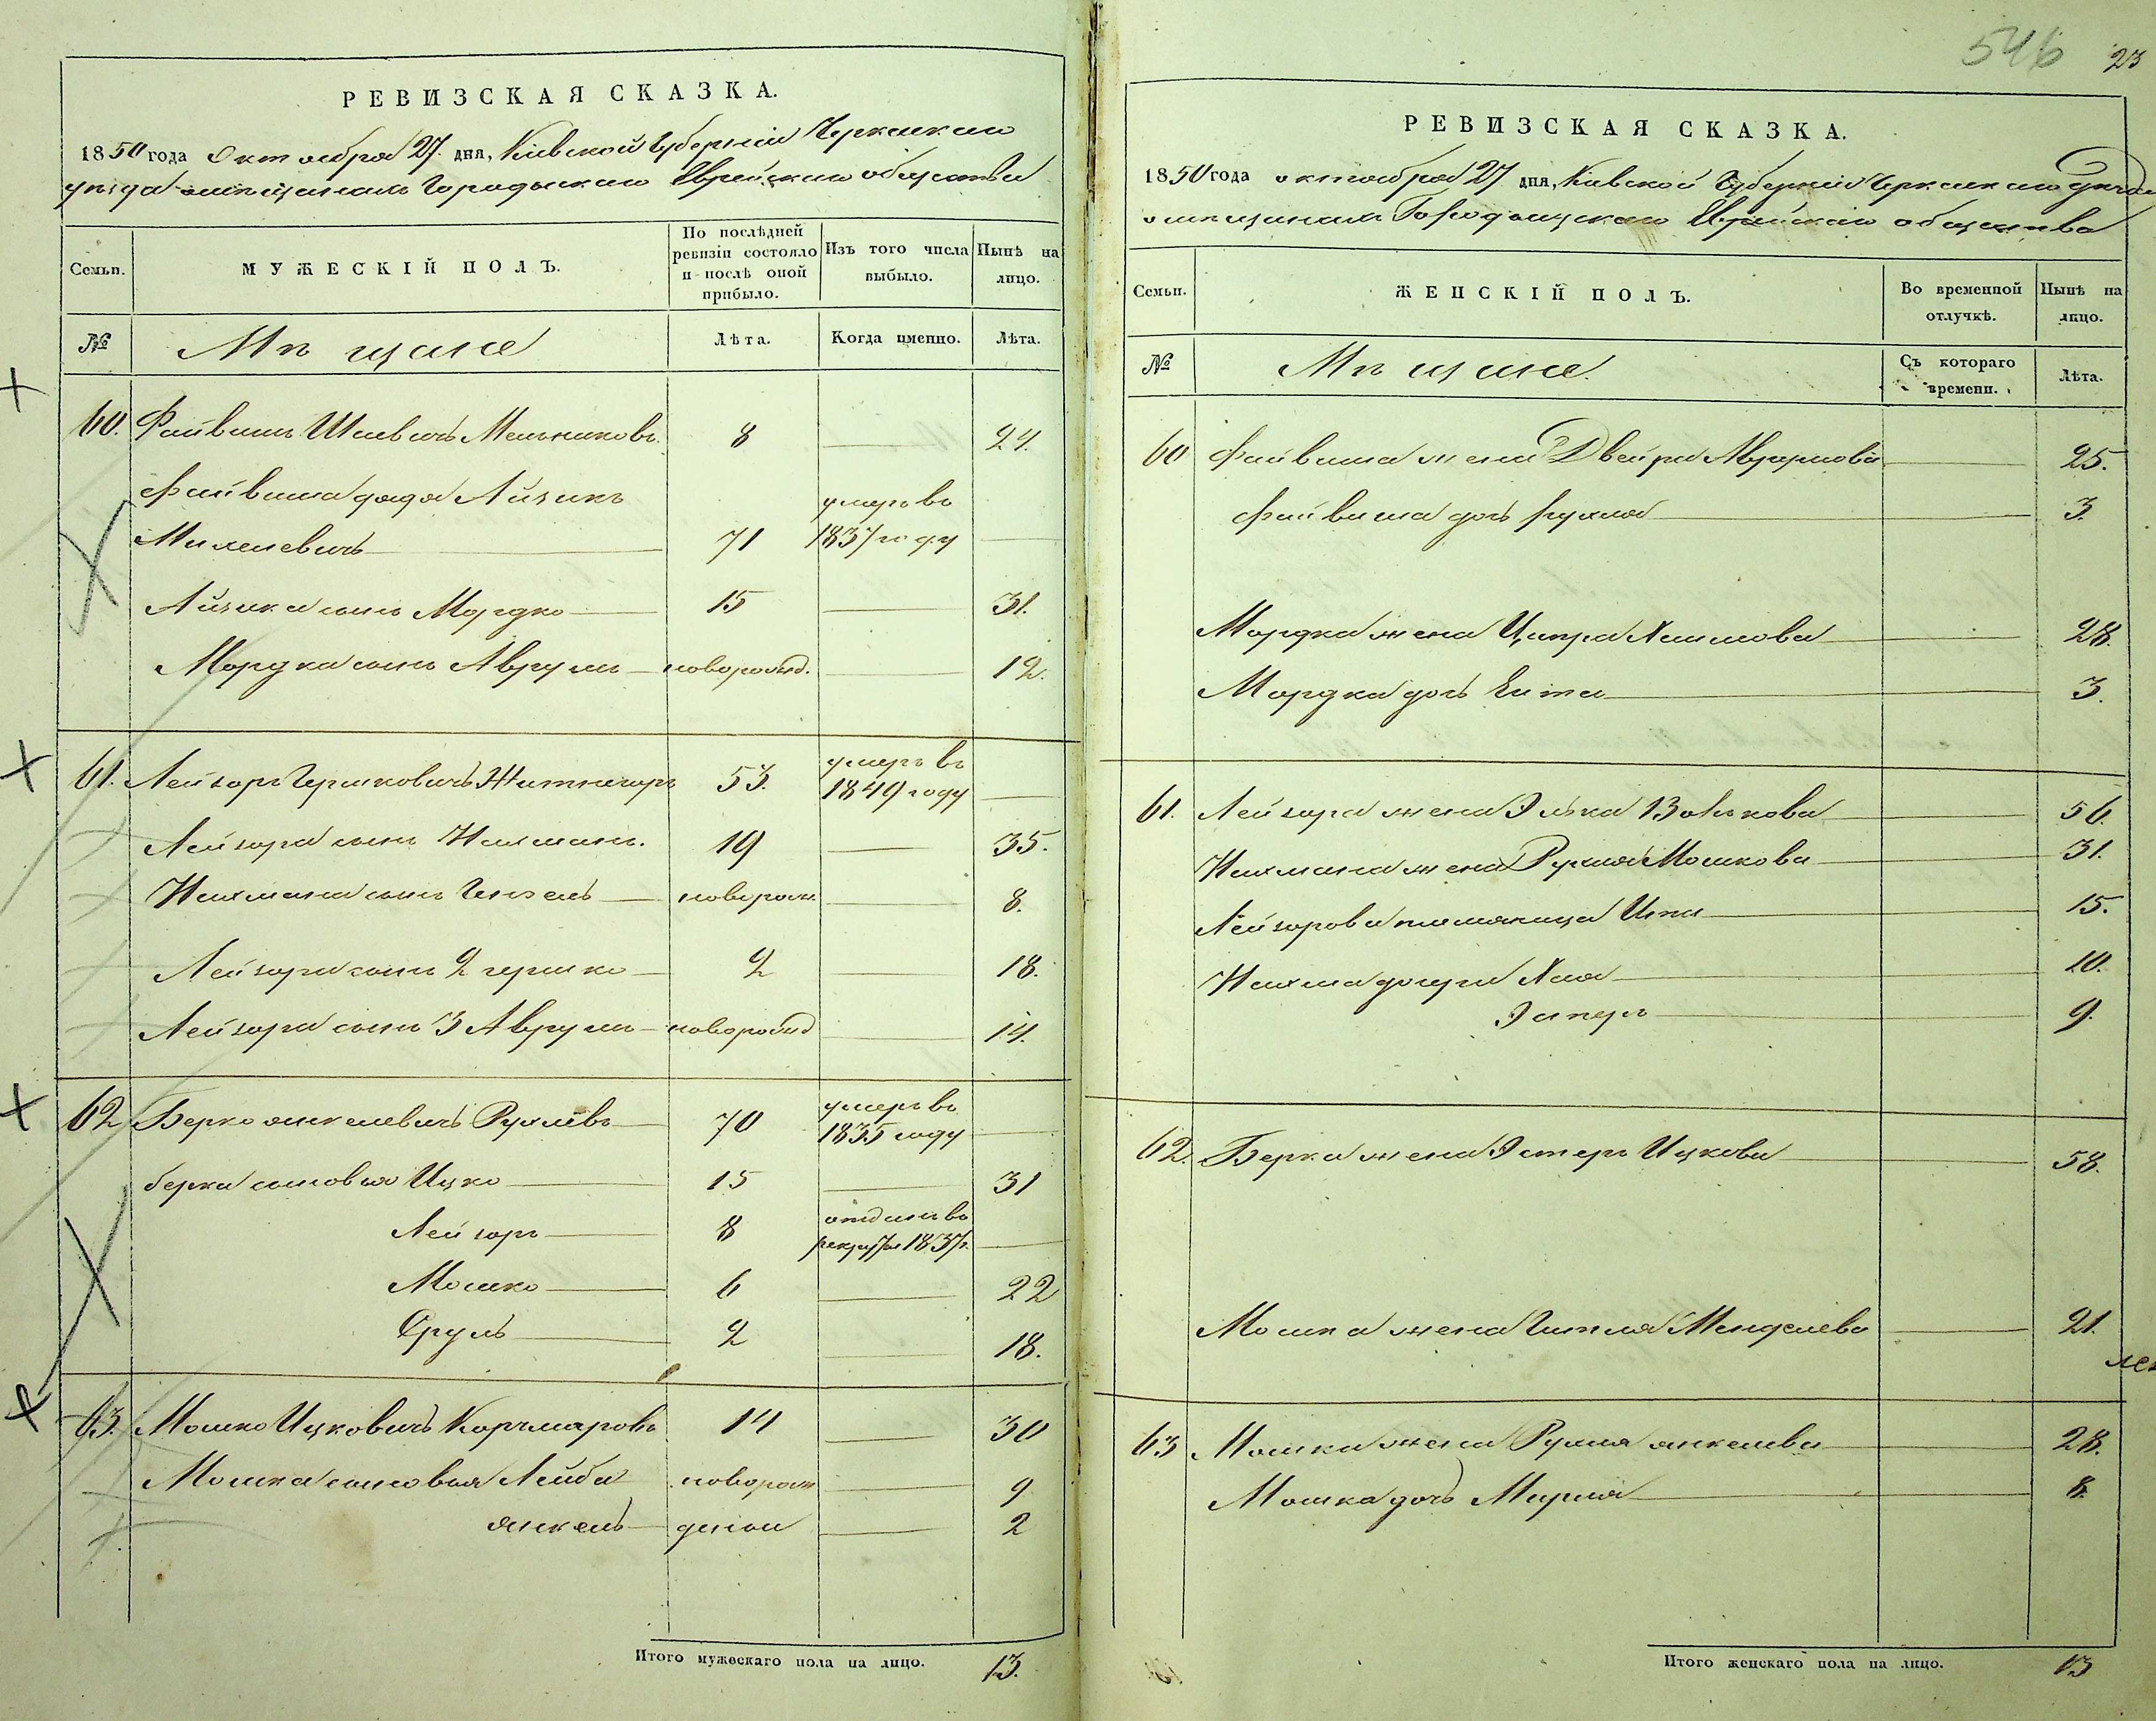 РЕВИЗСКАЯ СКАЗКА.
1850 года октября 27 дня, Кіевской Губерніи Черкаскаго
уѣзда о мѣщанахъ Городыскаго Еврейскаго общества
Семьи.
МУЖЕСКІЙ ПОЛЪ.
По послѣдней ревизіи состояло и послѣ оной прибыло.
Изъ того числа выбыло.
Нынѣ на лицо.
№
Мѣщане
Лѣта.
Когда именно.
Лѣта.
60. Файвишъ Шаевичъ Мельниковъ. 8 24.
Файвиша дядя Айзикъ умеръ въ
Михелевичъ 71 1837 году
Айзика сынъ Мордко 15 31.
Мордка сынъ Аврумъ новорожд. 12.
61. Лейзоръ Гершковичъ Житничоръ 53. умеръ въ
1849 году
Лейзора сынъ Нахманъ. 19 35.
Нахмана сынъ новорож. 8.
Лейзора сынъ 2 Гершко 2 18.
Лейзора сынъ 3 Аврумъ новорожд 14.
62 Берко Янкелевичъ Рухлѣвъ 70 умеръ въ
1835 году
Берка сыновья Ицко 15 31
Лейзоръ 8 отданъ въ
рекруты 1837г.
Мошко 6 22
Сруль 2 18.
63. Мошко Ицковичъ Корчмаровъ 14 30
Мошка сыновья Лейба новорож 9
Янкель денны 2
Итого мужескаго пола на лицо. 13.
546 23
РЕВИЗСКАЯ СКАЗКА.
1850 года октября 27 дня, Кіевской Губерніи Черкаскаго уѣзда
о мѣщанахъ Городыщскаго Еврейскаго общества
Семьи.
ЖЕНСКІЙ ПОЛЪ.
Во временной отлучкѣ.
Нынѣ на лицо.
№
Мѣщане.
Съ котораго времени.
Лѣта.
60 Файвиша жена Двейра Абрамова 25.
Файвиша дочь Рухля 3.
Мордка жена Ципра Хаимова 28.
Мордка дочь Ента 3.
61. Лейзора жена Элька Волькова 56.
Нахмана жена Рухля Мошкова 31.
Лейзорова племяница 15.
Нахма дочери Хая 10.
Эстеръ 9.
62. Берка жена Эстеръ Ицкова 58.
Мошка жена Гитля Менделева 21.
63 Мошки жена Рухля Янкелева 28.
Мошка дочь Мирля 8.
Итого женскаго пола на лицо. 13